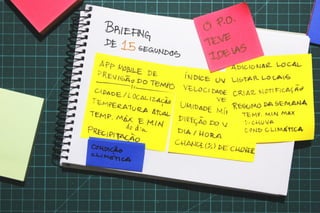 BRIEFING
DE 15 SEGUNDOS
O P.O.
TEVE
IDEIAS
APP MOBILE DE
PREVISÃO DO TEMPO
CIDADE/LOCALIZAÇÃO
TEMPERATURA ATUAL
TEMP. MÁX E MIN
do dia
PRECIPITAÇÃO
CONDIÇÃO
CLIMÁTICA
ÍNDICE UV
VELOCIDADE
UMIDADE
DIREÇÃO DO V
DIA / HORA
CHANCE(%) DE CHOVER
ADICIONAR LOCAL
LISTAR LOCAIS
CRIAR NOTIFICAÇÃO
RESUMO DA SEMANA
TEMP. MIN MAX
% CHUVA
COND CLIMÁTICA